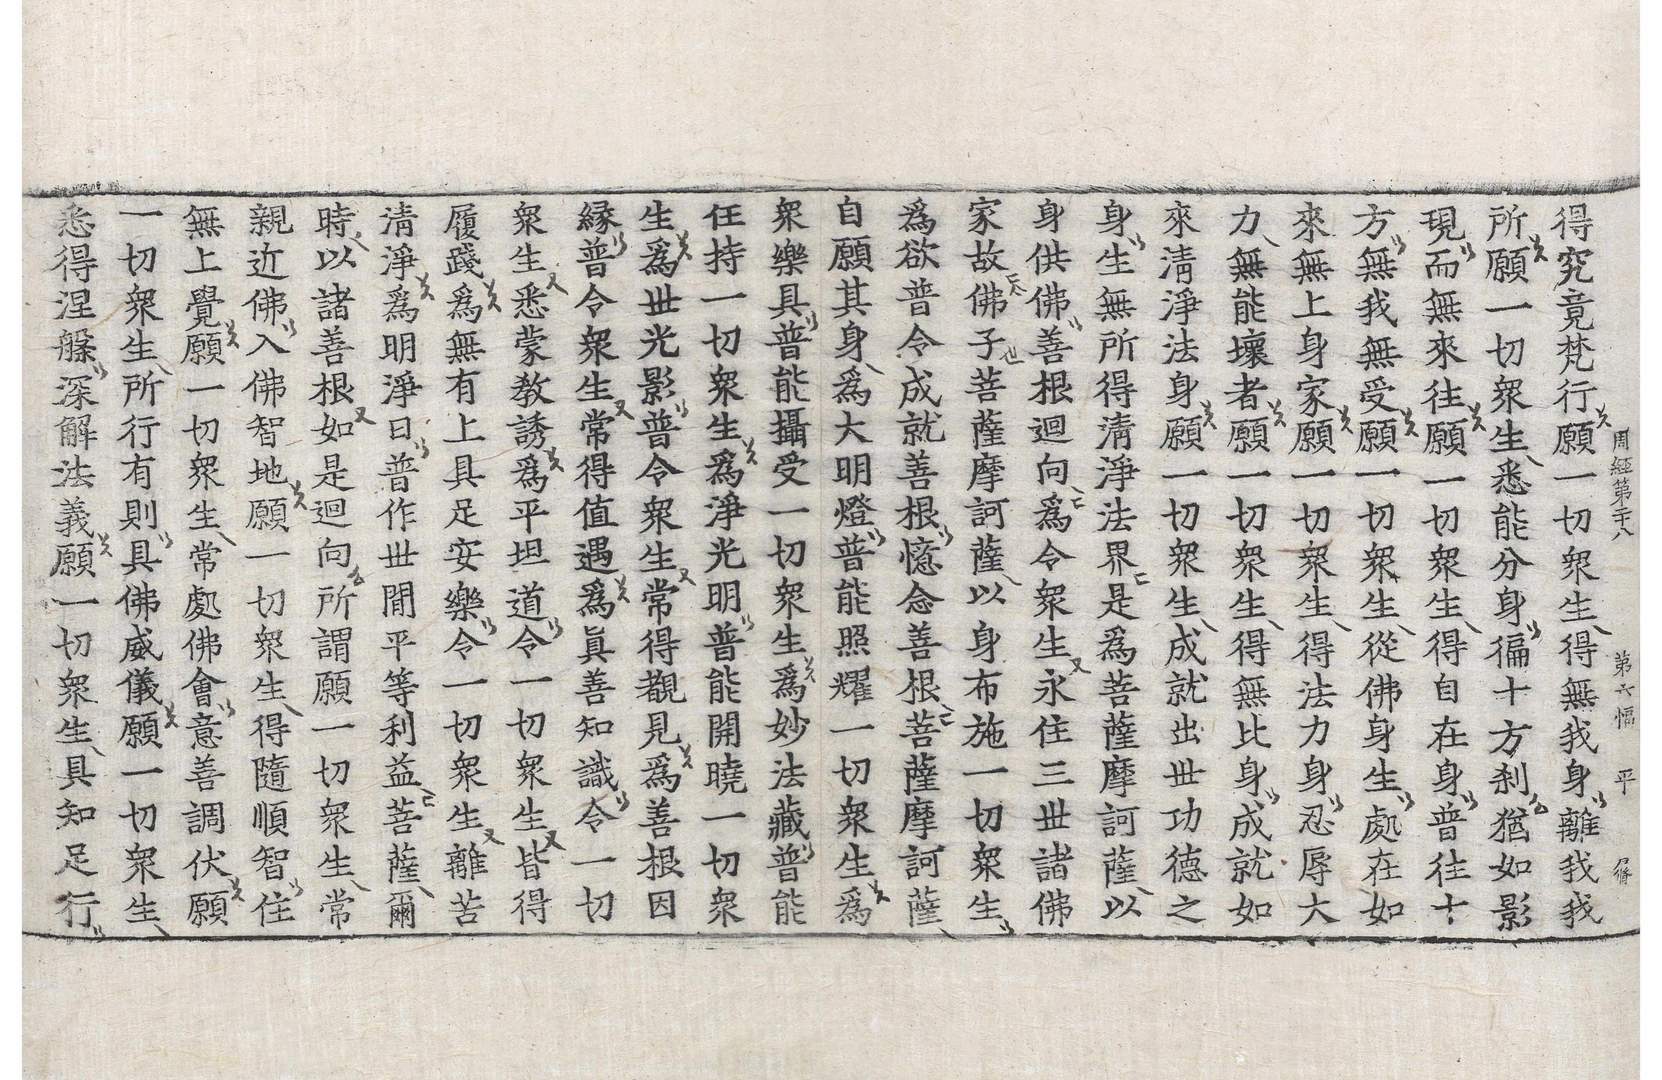 周經第二十八 第六幅 平
得究竟梵行願一切衆生得無我身離我我
所願一切衆生悉能分身徧十方刹猶如影
現而無來往願一切衆生得自在身普往十
方無我無受願一切衆生從佛身生處在如
來無上身家願一切衆生得法力身忍辱大
力無能壞者願一切衆生得無比身成就如
來清淨法身願一切衆生成就出世功德之
身生無所得清淨法界是爲菩薩摩訶薩以
身供佛善根迴向爲令衆生永住三世諸佛
家故佛子菩薩摩訶薩以身布施一切衆生
爲欲普令成就善根憶念善根菩薩摩訶薩
自願其身爲大明燈普能照耀一切衆生爲
衆樂具普能攝受一切衆生爲妙法藏普能
任持一切衆生爲淨光明普能開曉一切衆
生爲世光影普令衆生常得覩見爲善根因
緣普令衆生常得值遇爲眞善知識令一切
衆生悉蒙敎誘爲平坦道令一切衆生皆得
履踐爲無有上具足安樂令一切衆生離苦
清淨爲明淨日普作世間平等利益菩薩爾
時以諸善根如是迴向所謂願一切衆生常
親近佛入佛智地願一切衆生得隨順智住
無上覺願一切衆生常處佛會意善調伏願
一切衆生所行有則具佛威儀願一切衆生
悉得涅槃深解法義願一切衆生具知足行